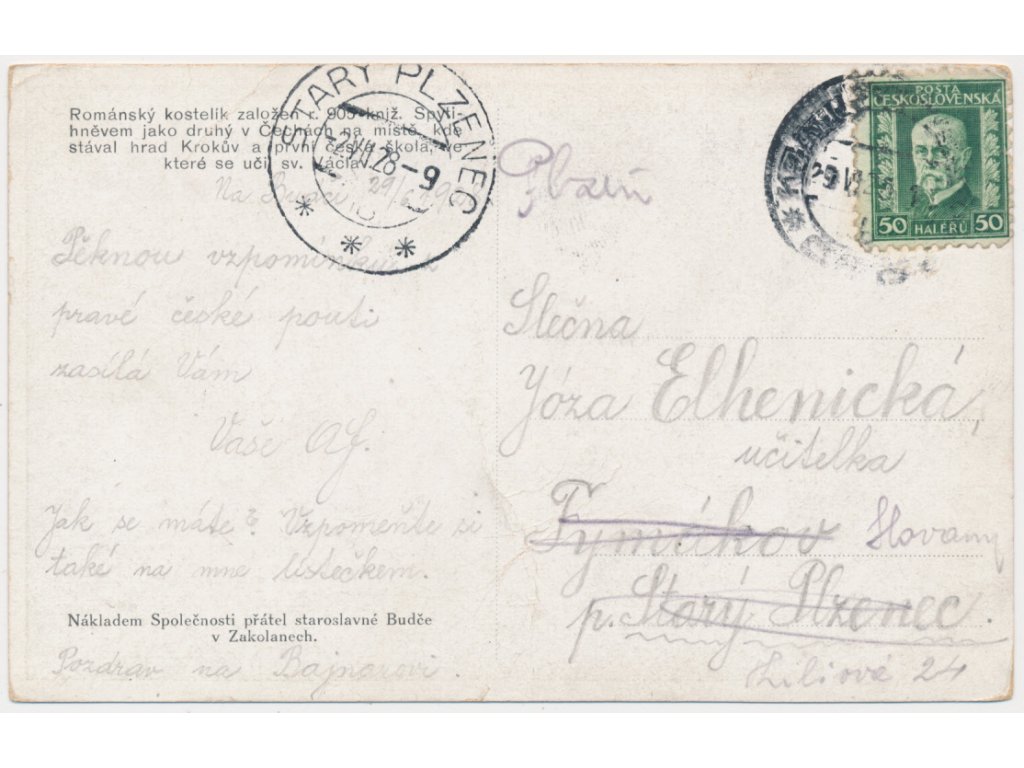 Románský kostelík založen r. 905 kníž. Spyti-
hněvem jako druhý v Čechách na místě, kde
stával hrad Krokův a první česká škola, ve
které se učil sv. Václav.
STARÝ PLZENEC
2.VII.28-9
POŠTA
ČESKOSLOVENSKÁ
50 HALÉŘŮ 50
Na Budči 29/6
Pěknou vzpomínku z
pravé české pouti
zasílá Vám
Vaše
Jak se máte? Vzpomeňte si
také na mne lístečkem.
Nákladem Společnosti přátel staroslavné Budče
v Zakolanech.
Pozdrav na Bajnarovi.
Slečna
Józa Elhenická,
učitelka
Tymákov Slovany
p. Starý Plzenec
Liliová 24